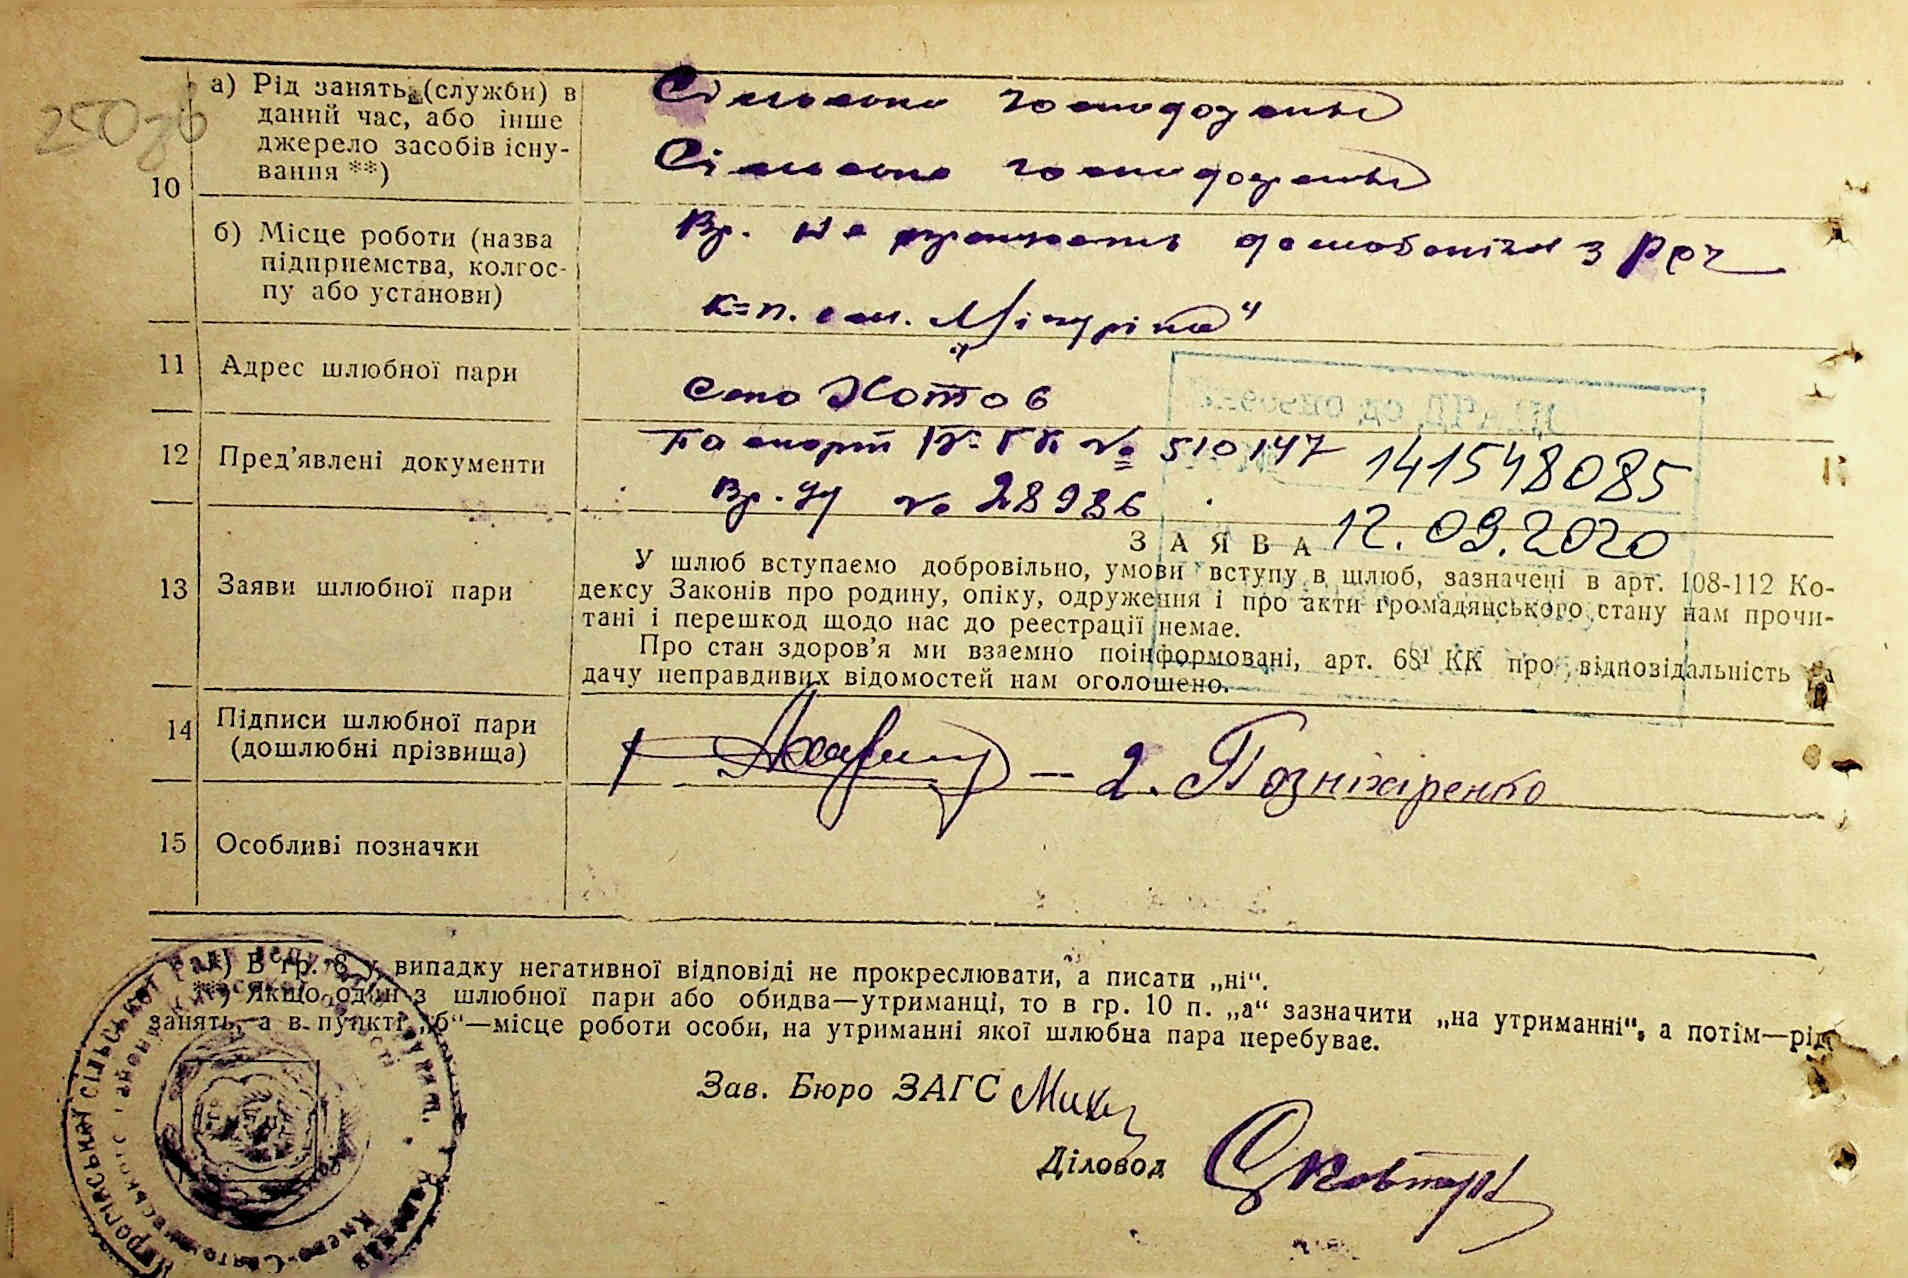 250зв
10
а) Рід занять (служби) в
даний час, або інше
джерело засобів існу-
вання **)
Сільське господарство
Сільське господарство
б) Місце роботи (назва
підприємства, колгос-
пу або установи)
Вр. не з
к-п. ім. „Мічуріна"
11 Адрес шлюбної пари
Село Хотов
12 Пред'явлені документи
Паспорт № 510147
Вр. № 28986
141548085
12.09.2020
13 Заяви шлюбної пари
ЗАЯВА
У шлюб вступаємо добровільно, умови вступу в шлюб, зазначені в арт. 108-112 Ко-
дексу Законів про родину, опіку, одруження і про акти громадянського стану нам прочи-
тані і перешкод щодо нас до реєстрації немає.
Про стан здоров'я ми взаємно поінформовані, арт. 68¹ КК про відповідальність за
дачу неправдивих відомостей нам оголошено.
14 Підписи шлюбної пари
(дошлюбні прізвища)
1 — 2. Позніхіренко
15 Особливі позначки
*) В гр. 8 у випадку негативної відповіді не прокреслювати, а писати „ні".
**) Якщо один з шлюбної пари або обидва—утриманці, то в гр. 10 п. „а" зазначити „на утриманні", а потім—рід
занять, а в пункті „б"—місце роботи особи, на утриманні якої шлюбна пара перебуває.
Зав. Бюро ЗАГС
Діловод